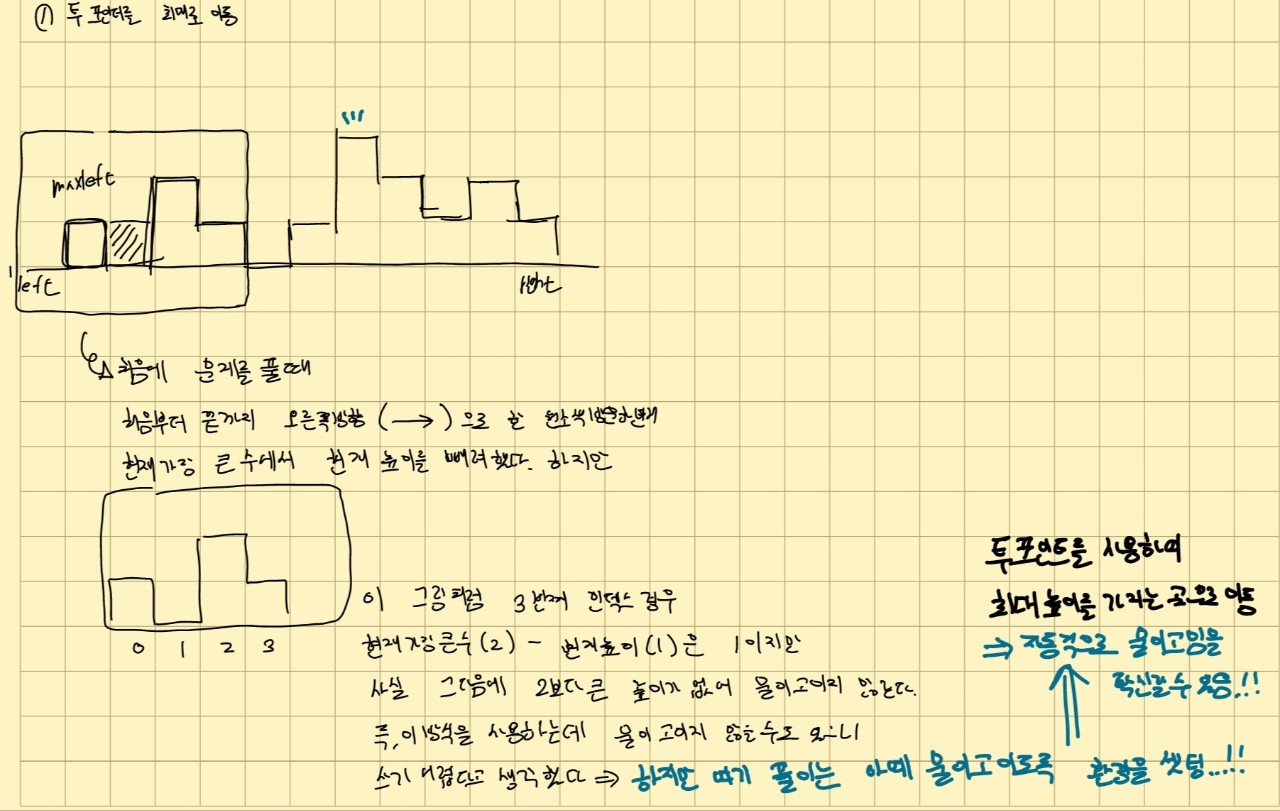 ① 투 포인터를 최대로 이동
maxleft
left
right
처음에 문제를 풀때
처음부터 끝까지 오른쪽방향 (→) 으로 한 원소씩 방문하면서
현재 가장 큰 수에서 현재 높이를 빼려 했다. 하지만
0 1 2 3
이 그림처럼 3번째 인덱스 경우
현재 가장 큰수(2) - 현재높이(1)은 1이지만
사실 그다음에 2보다 큰 높이가 없어 물이 고이지 않는다.
즉, 이 방식을 사용하는데 물이 고이지 않을 수도 있으니
쓰기 어렵다고 생각했다 ⇒ 하지만 따기 풀이는 아예 물이 고이도록 환경을 셋팅...!!
투 포인트를 사용하여
최대 높이를 가지는 곳으로 이동
⇒ 자동적으로 물이고임을
확신할수 있음.!!